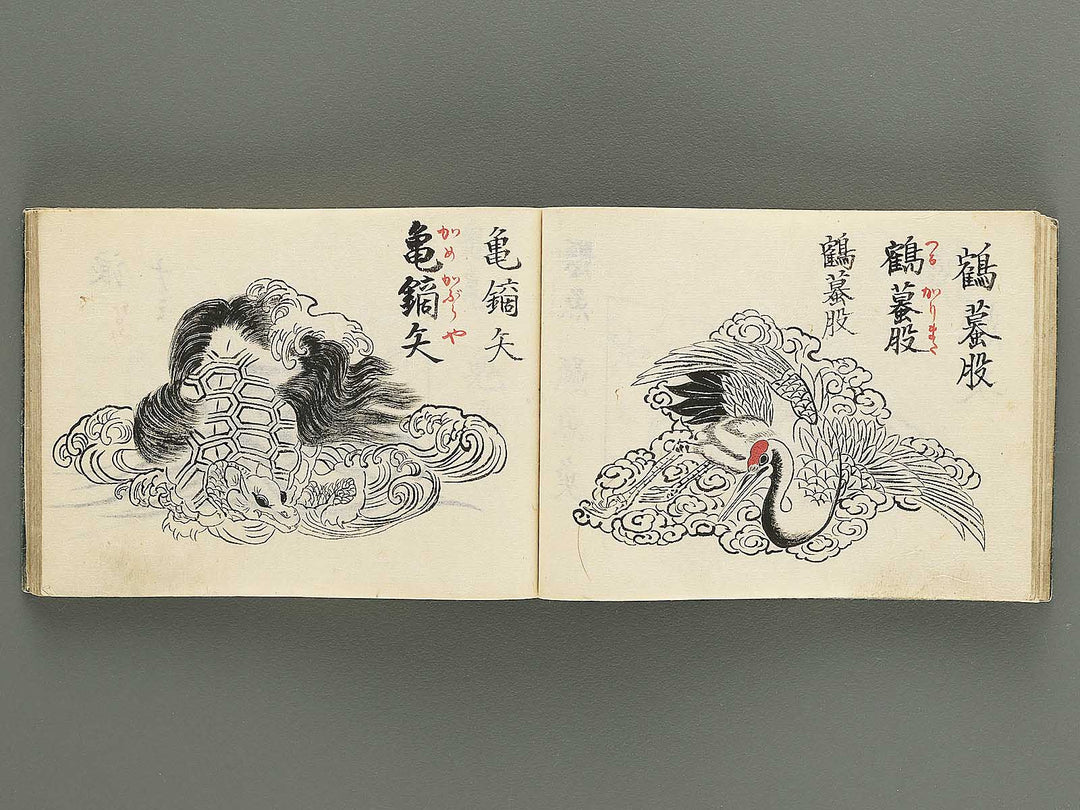 鶴蟇股
つる かりまた
鶴蟇股
鶴蟇股
亀鏑矢
かめ かぶらや
亀鏑矢